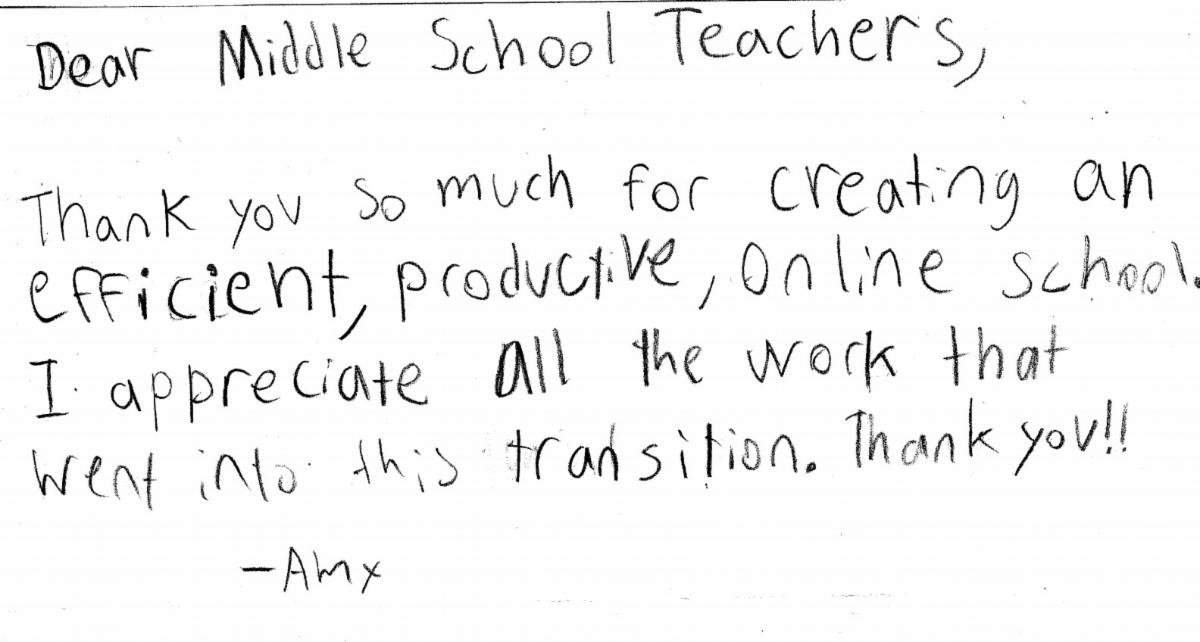 Dear Middle School Teachers,
Thank you so much for creating an
efficient, productive, online school.
I appreciate all the work that
went into this transition. Thank you!!
-Amy